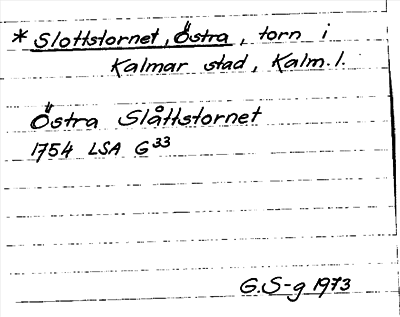 * Slottstornet, Östra, torn i
Kalmar stad, Kalm. l.
Östra Slåttstornet
1754 LSA G33
G.S-g 1973